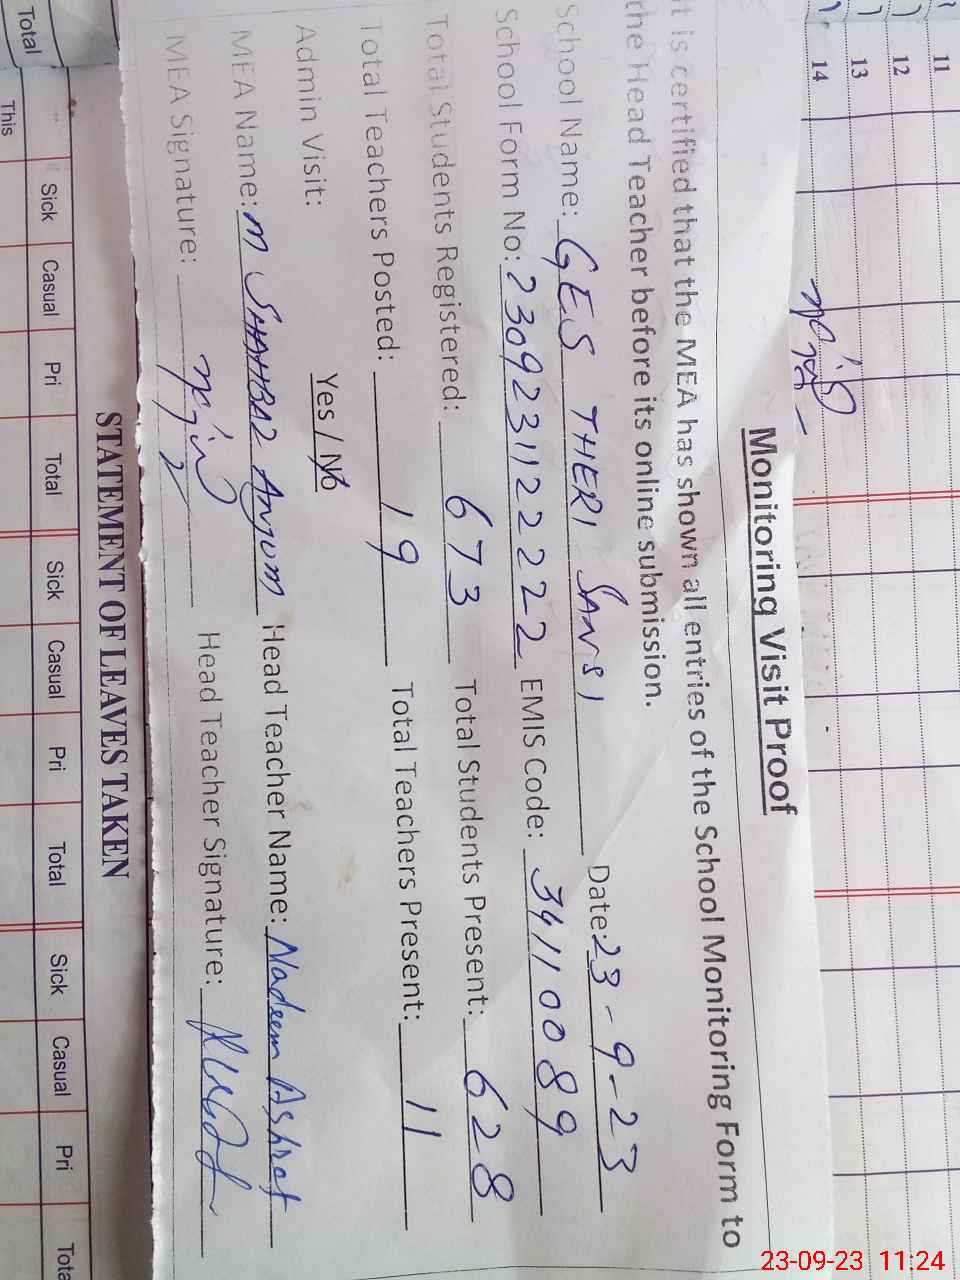 11
12
13
14
Monitoring Visit Proof
It is certified that the MEA has shown all entries of the School Monitoring Form to
the Head Teacher before its online submission.
School Name: GES THERI SANSI Date: 23-9-23
School Form No: 2309231122222 EMIS Code: 34110089
Total Students Registered: 673 Total Students Present: 628
Total Teachers Posted: 19 Total Teachers Present: 11
Admin Visit: Yes / No
MEA Name: M SHAHBAZ Anjum Head Teacher Name: Nadeem Ashraf
MEA Signature: Head Teacher Signature:
STATEMENT OF LEAVES TAKEN
Total Sick Casual Pri Total Sick Casual Pri Total Sick Casual Pri Total
This
23-09-23 11:24